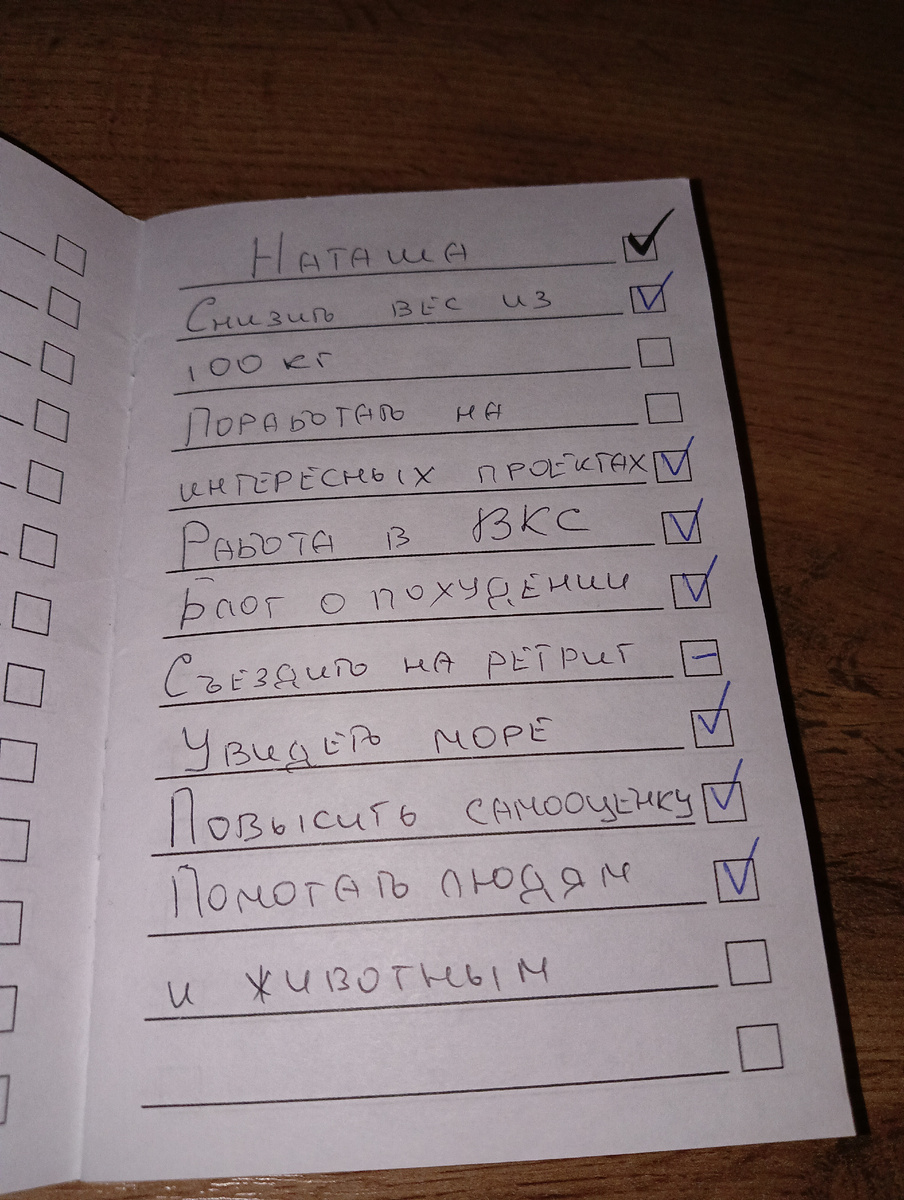 Наташа
Снизить вес из
100 кг
Поработать на
интересных проектах
Работа в ВКС
Блог о похудении
Съездить на ретрит
Увидеть море
Повысить самооценку
Помогать людям
и животным